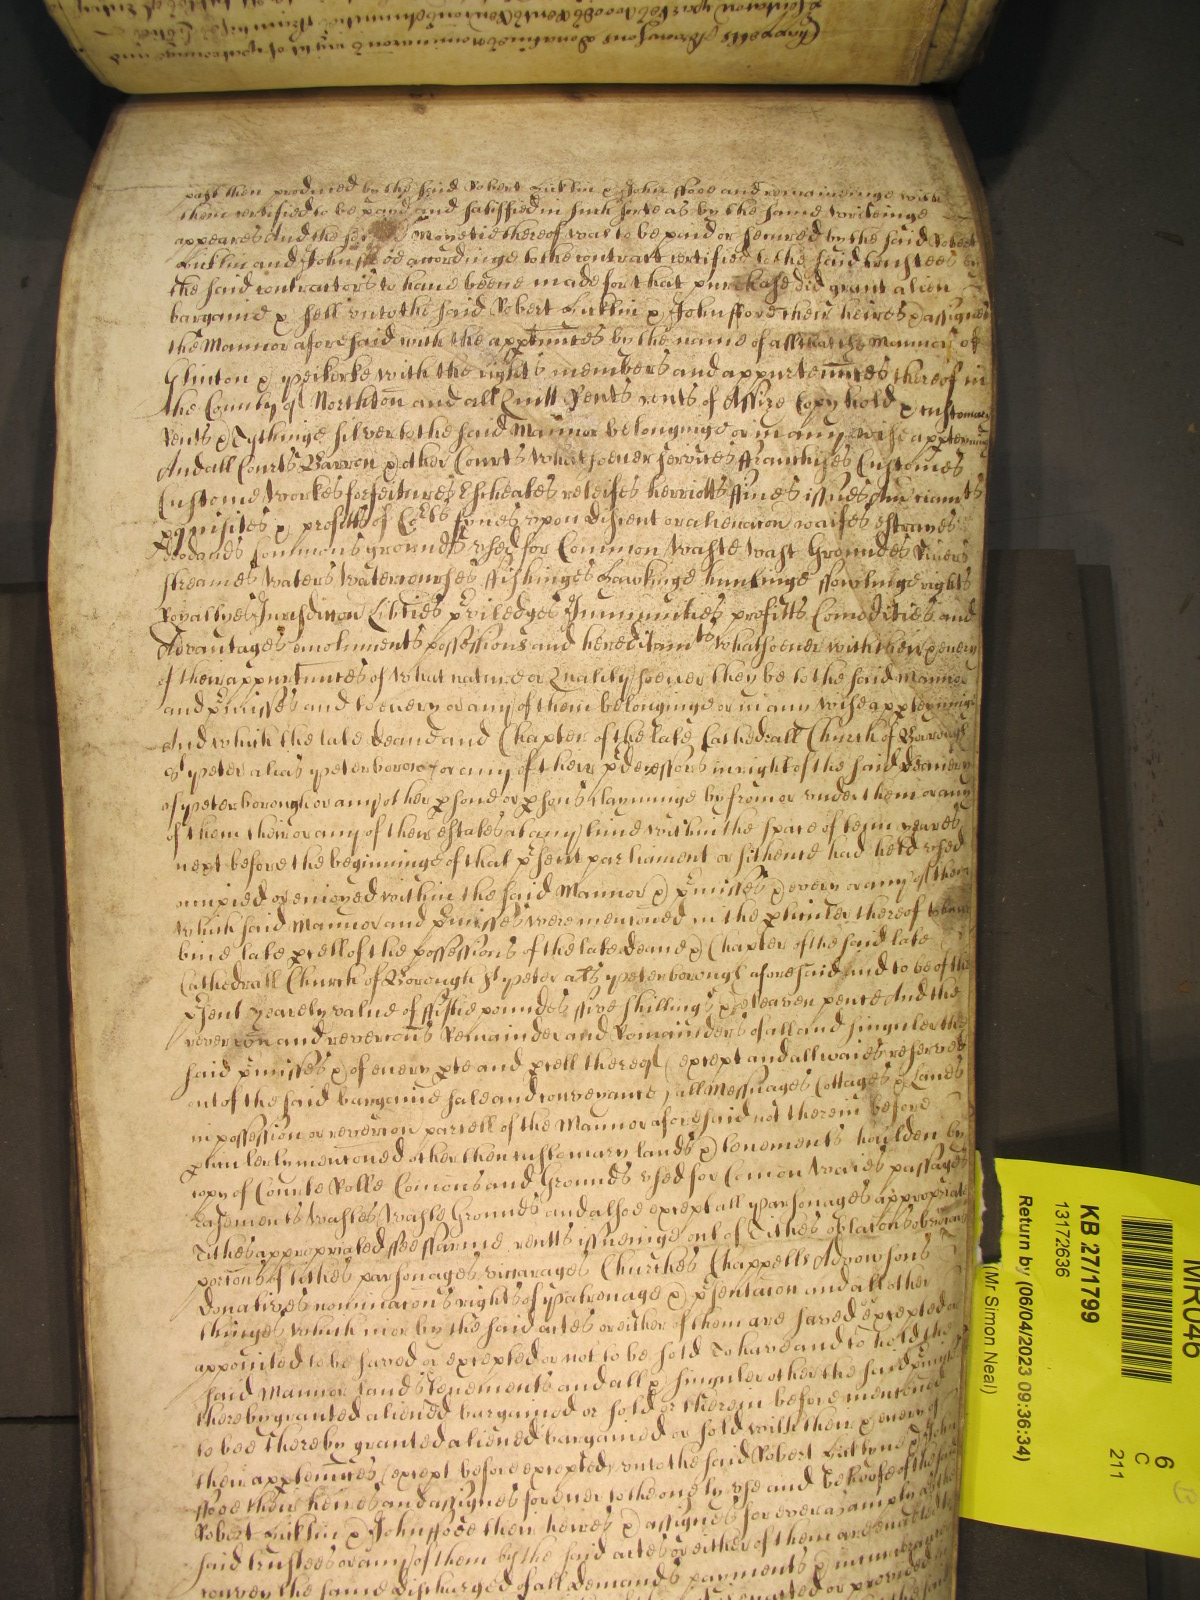 past then produced by the said Robert Bicklin & John ffooe and remaineinge with
them certified to be payd and satisfied in such sorte as by the same writeinge
appeares And the moyetie thereof was to be paid or secured by the said Robert
Bicklin and John accordinge to the contract certified to the said trustees by
the said contractors to haue beene made for that purchase did grant alien
bargaine & sell vnto the said Robert Bicklin & John ffooe their heires & assignes
the Mannor aforesaid with the appten̄nces by the name of all that the Mannor of
Glinton & Peikirke with the rights members and appurten̄nces thereof in
the County of Northton and all Quitt Rents rents of Assize Copyhold & customary
rents & Tythinge silver to the said Mannor belonginge or in any wise apptening
And all Courts Barron & other Courts whatsoever services ffranchises Customes
Custome workes forfeitures Escheates releifes herriotts ffines issues Amerciamts
pquisites & profitts of Corts fynes vpon discent or alienacon waifes estrayes
deodands Commons grounds vsed for Common waste wast Groundes Rivers
streames waters watercourses ffishinges hawkinge huntinge ffowlinge rights
Royaltyes Jurisdiccon Libties priviledges Immunities profitts Comodities and
Advantages emolumentts possessions and hereditamts whatsoever with their & every
of their appurtunces of what nature or Quality soever they be to the said Mannor
and pmisses and to every or any of them belonginge or in any wise appteyninge
And which the late Deane and Chapter of the late Cathedrall Church of Borough
St Peter alias Peterborough or any of their pdecessors in right of the said Deanery
of Peterborough or any other psone or psons clayminge by from or vnder them or any
of them their or any of their estates at any time within the space of tenn yeares
next before the beginninge of that psent parliament or sithence had held vsed
occupied or enioyed within the said Mannor & pmisses & every or any of them
which said Mannor and pmisses were mentioned in the pticuler thereof to have
bine late pcell of the possessions of the late Deane & Chapter of the said late
Cathedrall Church of Borough St Peter als Peterborough aforesaid and to be of the
psent yearely value of ffiftie poundes ffive shillings & eleaven pence And the
revercon and revercons Remainder and Remainders of all and singuler the
said pmisses & of every pte and pcell thereof (except and allwaies reserved
out of the said bargaine sale and conveyance) all Messuages Cottages & Lands
in possession or revercon parcell of the Mannor aforesaid not therein before
pticulerly mencioned other then customary lands & tenements houlden by
copy of Courte Rolle Comons and Grounds vsed for Comon waies passages
easements wastes waste Grounds and alsoe except all Parsonages appropriate
Tithes appropriated ffee ffarme rentts issueinge out of Tithes oblacons obvencons
porcons of tithes parsonages viccarages Churches Chappells Advowsons
Donatives nominacons rights of Patronage & psentacon and all other
thinges which in or by the said actes or either of them are saved excepted or
appointed to be saved or excepted or not to be sold To have and to hold the
said Mannor lands tenements and all & singuler other the said pmisses
thereby granted aliened bargained or sold or therein before mentioned
to bee thereby granted aliened bargained or sold with their & every of
their apptennces (except before excepted) vnto the said Robert Bicklyne & John
ffooe their heires and assignes for ever to the onely vse and behoofe of the said
Robert Bicklin & John ffooe their heires & assignes for ever as amply as the
said trustees or any of them by the said actes or either of them are enacted to
convey the same discharged of all demands payments & incumbrances
KB 27/1799
13172636
Return by (06/04/2023 09:36:34)
(Mr Simon Neal)
MR04b
6
C
211